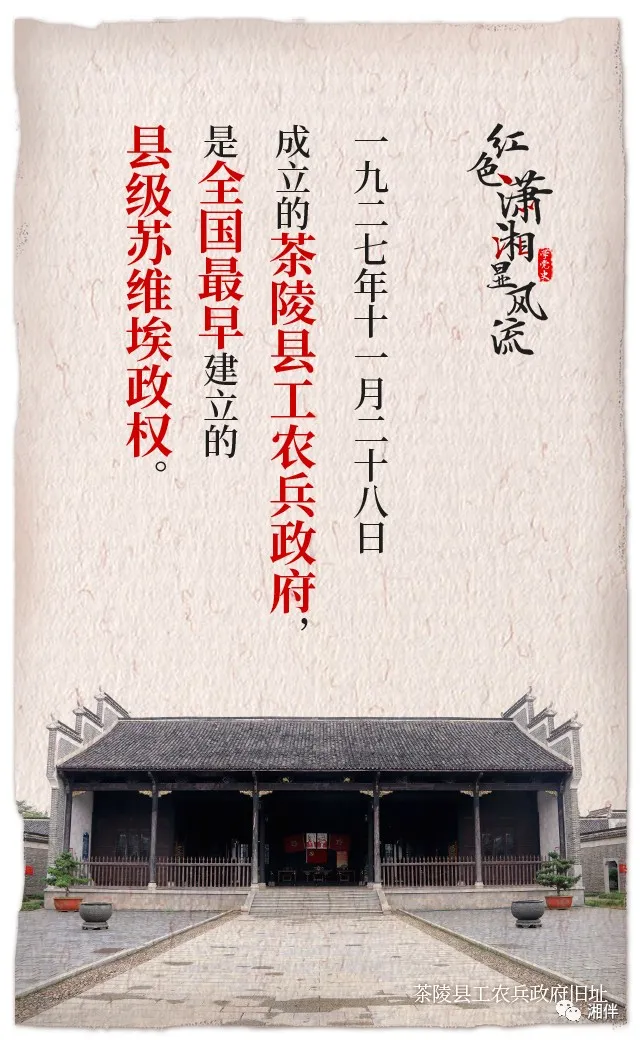 红色潇湘显风流
学党史
一九二七年十一月二十八日
成立的茶陵县工农兵政府，
是全国最早建立的
县级苏维埃政权。
茶陵县工农兵政府旧址
湘伴